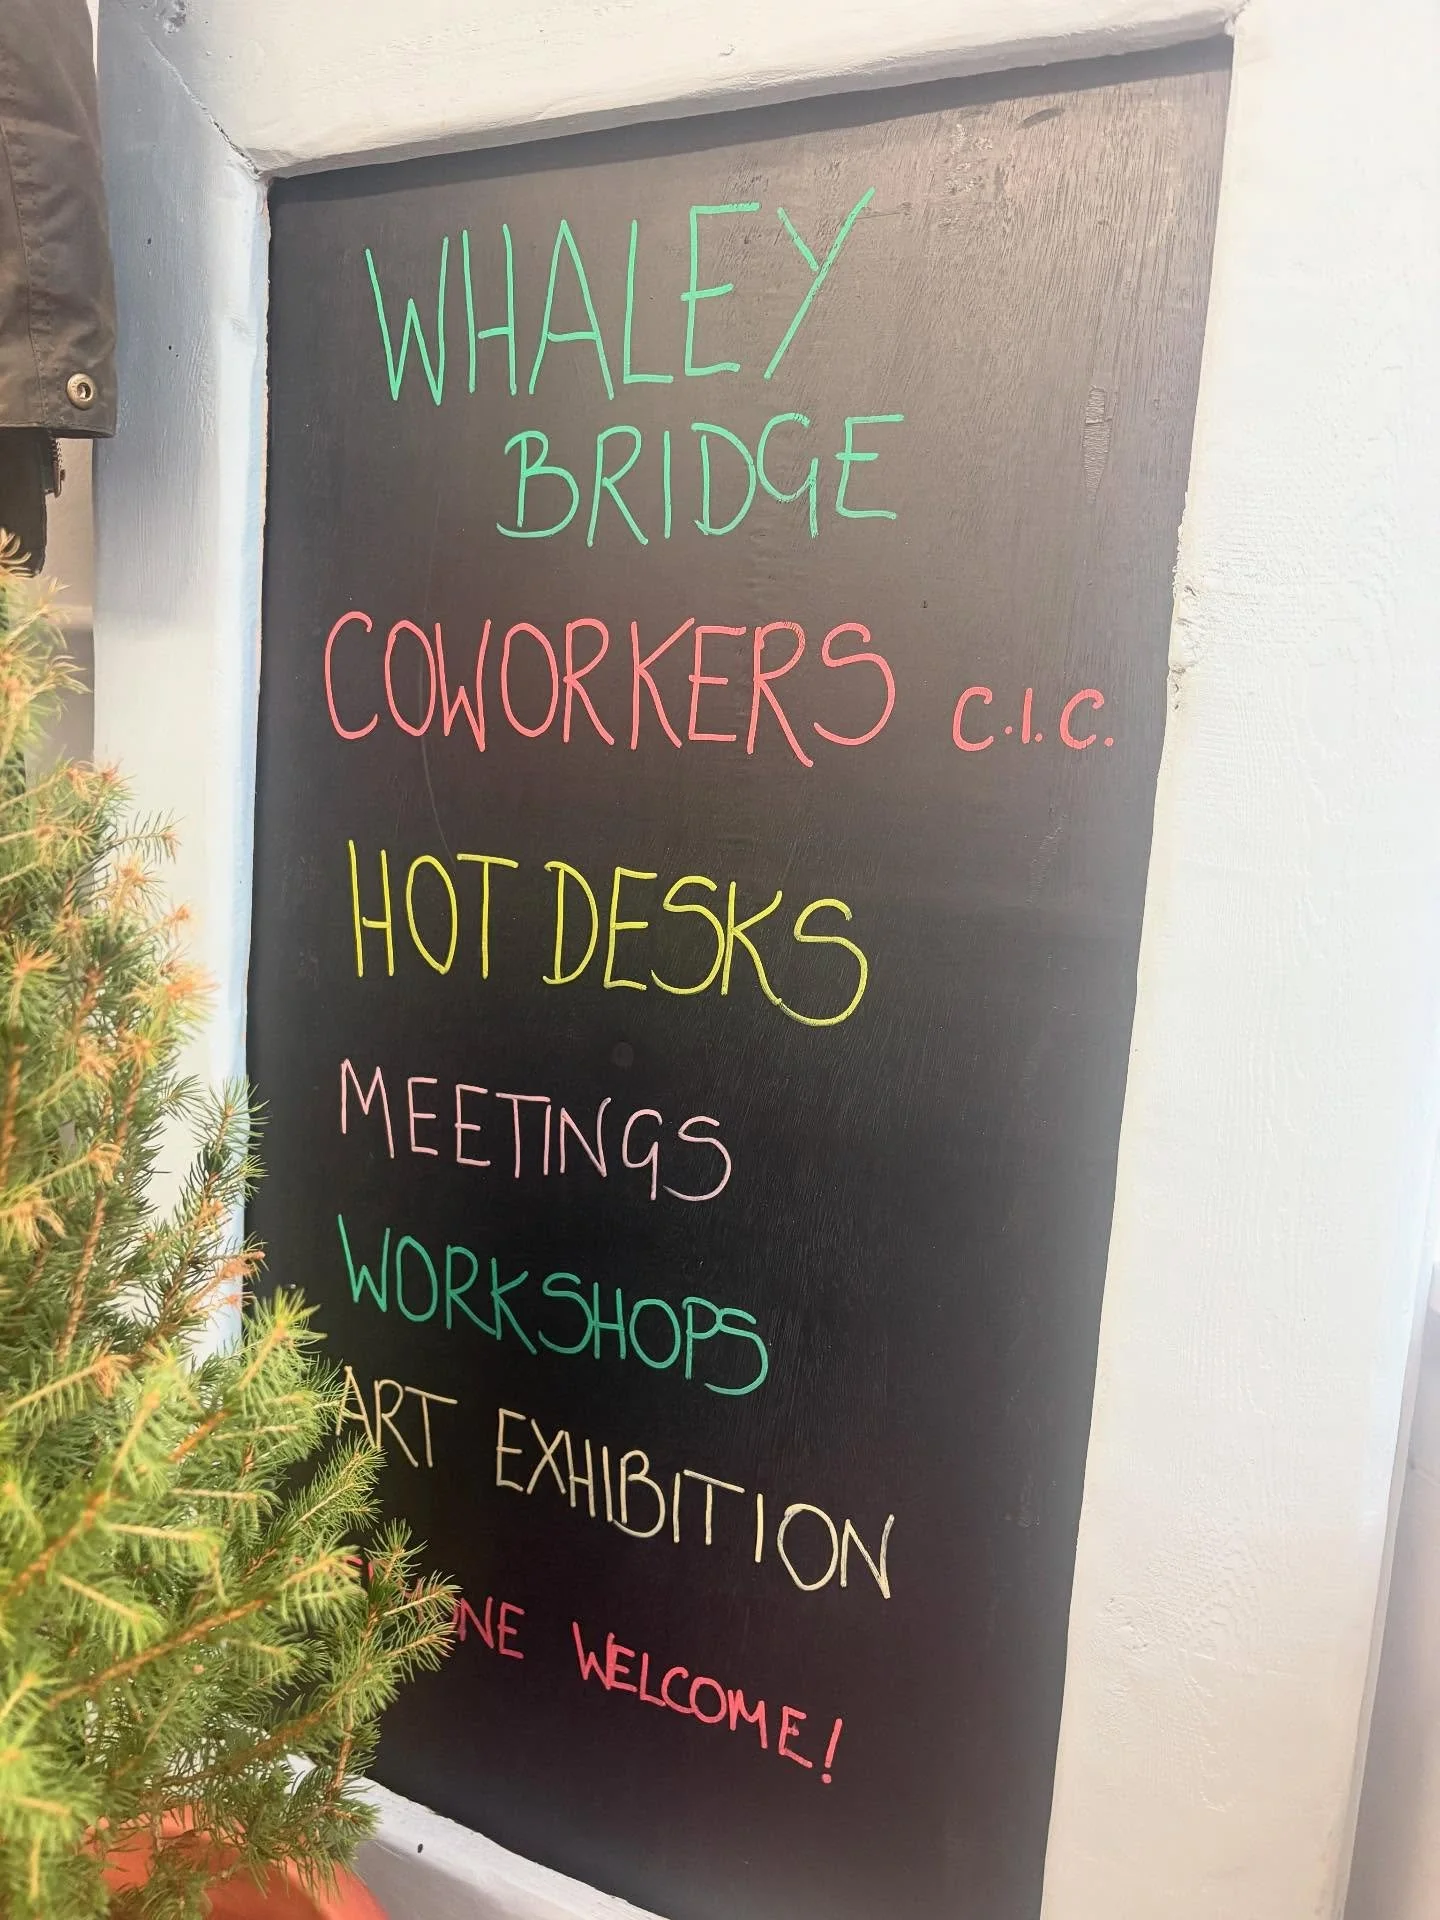 WHALEY
BRIDGE
COWORKERS C.I.C.
HOT DESKS
MEETINGS
WORKSHOPS
ART EXHIBITION
WELCOME!